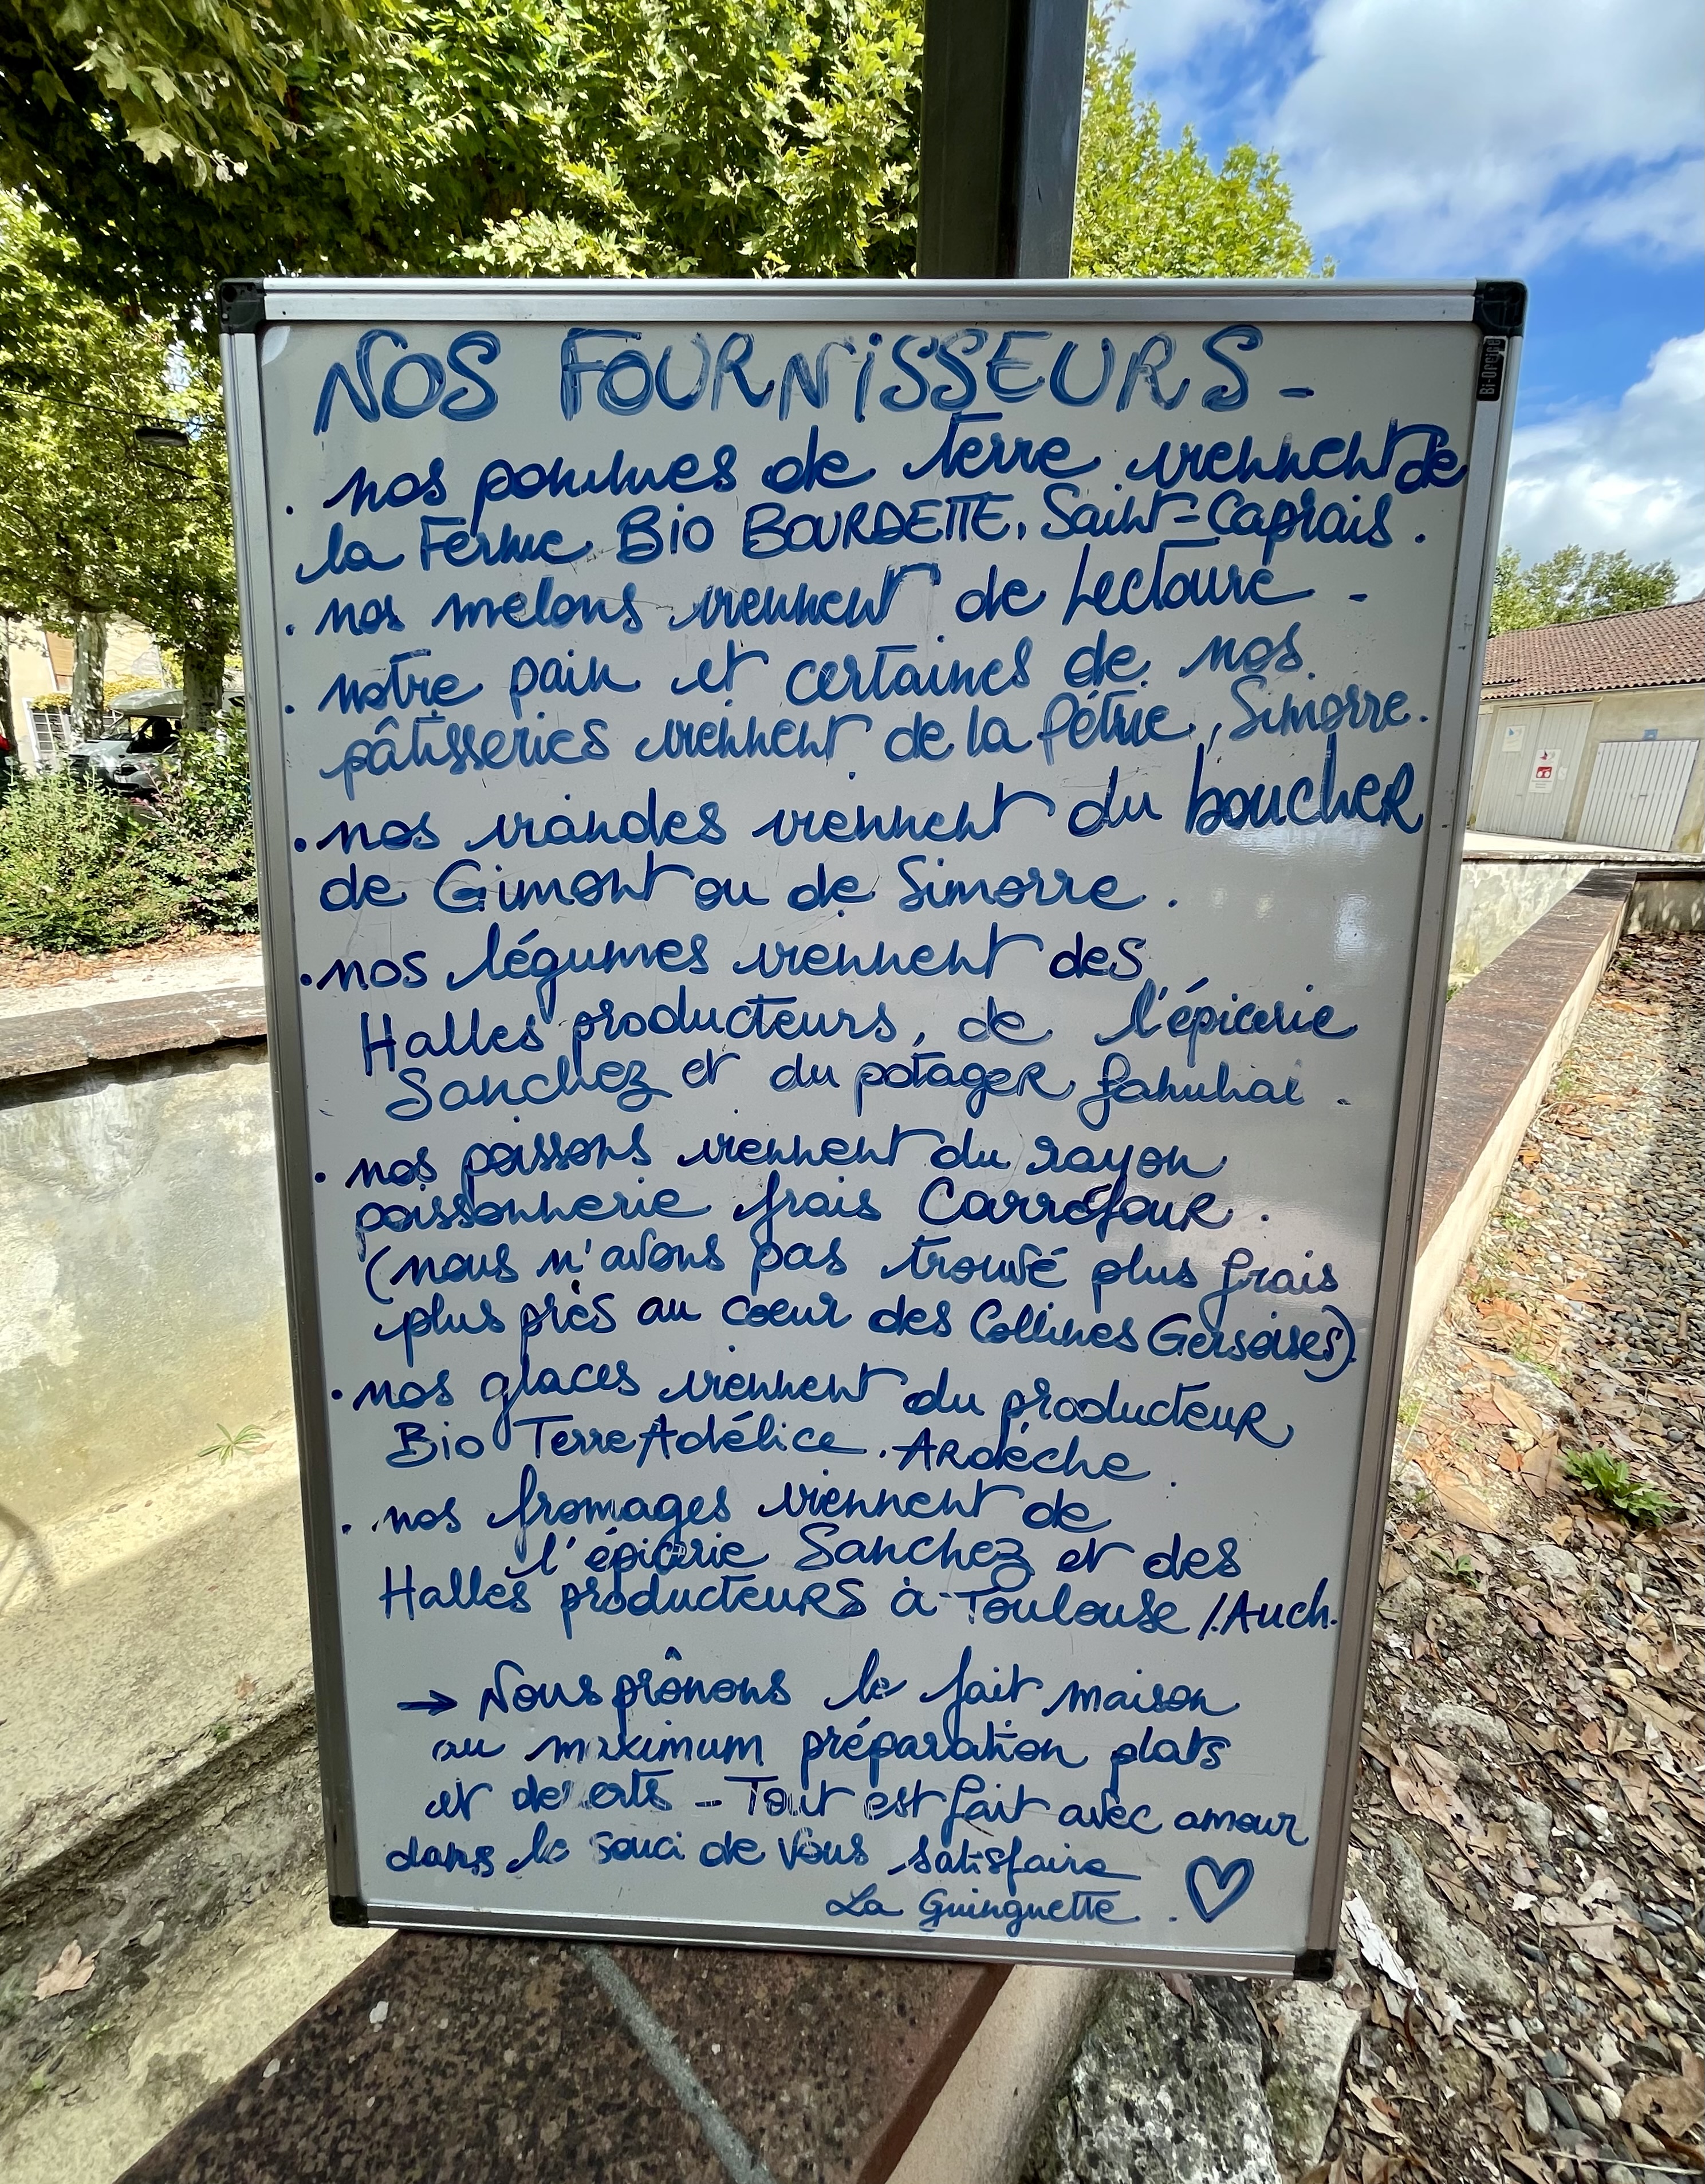 NOS FOURNISSEURS -
. nos pommes de terre viennent de
la Ferme Bio BOURDETTE, Saint-Caprais.
. nos melons viennent de Lectoure -
. notre pain et certaines de nos
pâtisseries viennent de la Pétrie, Simorre.
. nos viandes viennent du boucher
de Gimont ou de Simorre.
. nos légumes viennent des
Halles producteurs, de l'épicerie
Sanchez et du potager familial.
. nos poissons viennent du rayon
poissonnerie frais Carrefour.
(nous n'avons pas trouvé plus frais
plus près au coeur des Collines Gersoises)
. nos glaces viennent du producteur
Bio Terre Adélice. Ardèche.
. nos fromages viennent de
l'épicerie Sanchez et des
Halles producteurs à Toulouse / Auch.
→ Nous prônons le fait maison
au maximum préparation plats
et desserts - Tout est fait avec amour
dans le souci de vous satisfaire
La Guinguette. ♡
Bi-Office